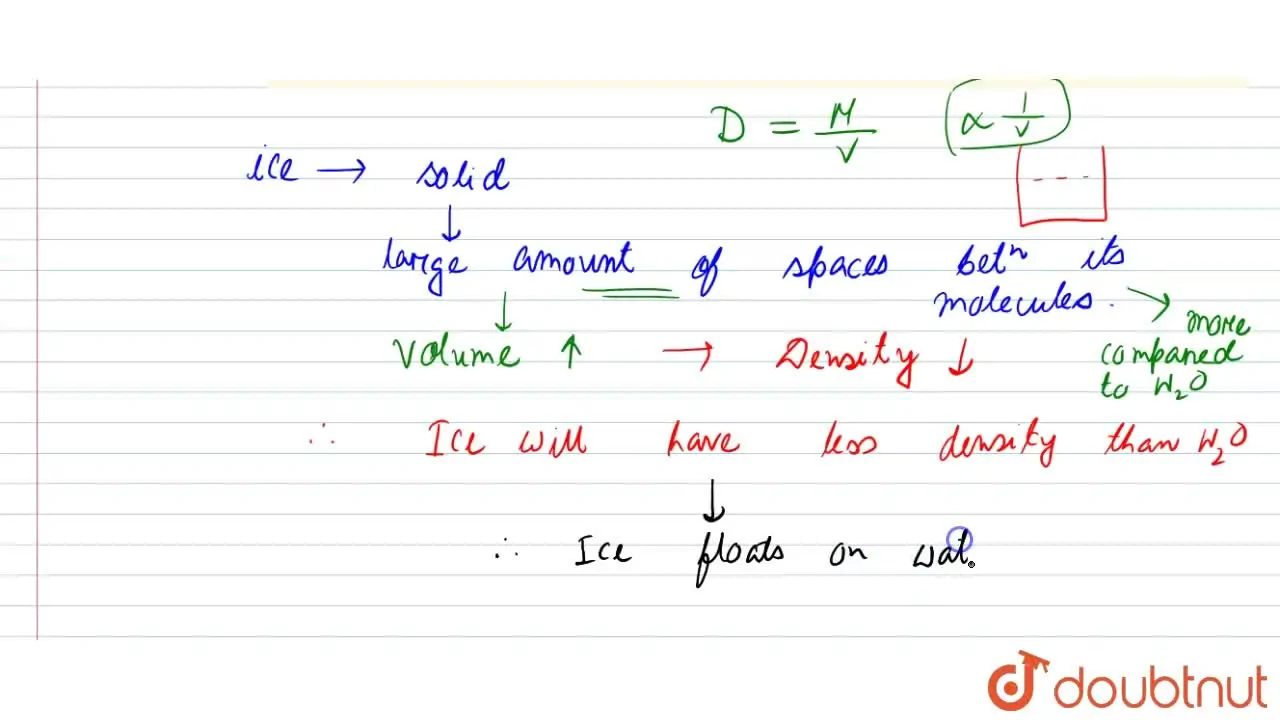 D = M/V ∝ 1/V
ice → solid
↓
large amount of spaces betⁿ its
molecules. → more
compared
to H₂O
↓
Volume ↑ → Density ↓
∴ Ice will have less density than H₂O
↓
∴ Ice floats on wat
doubtnut